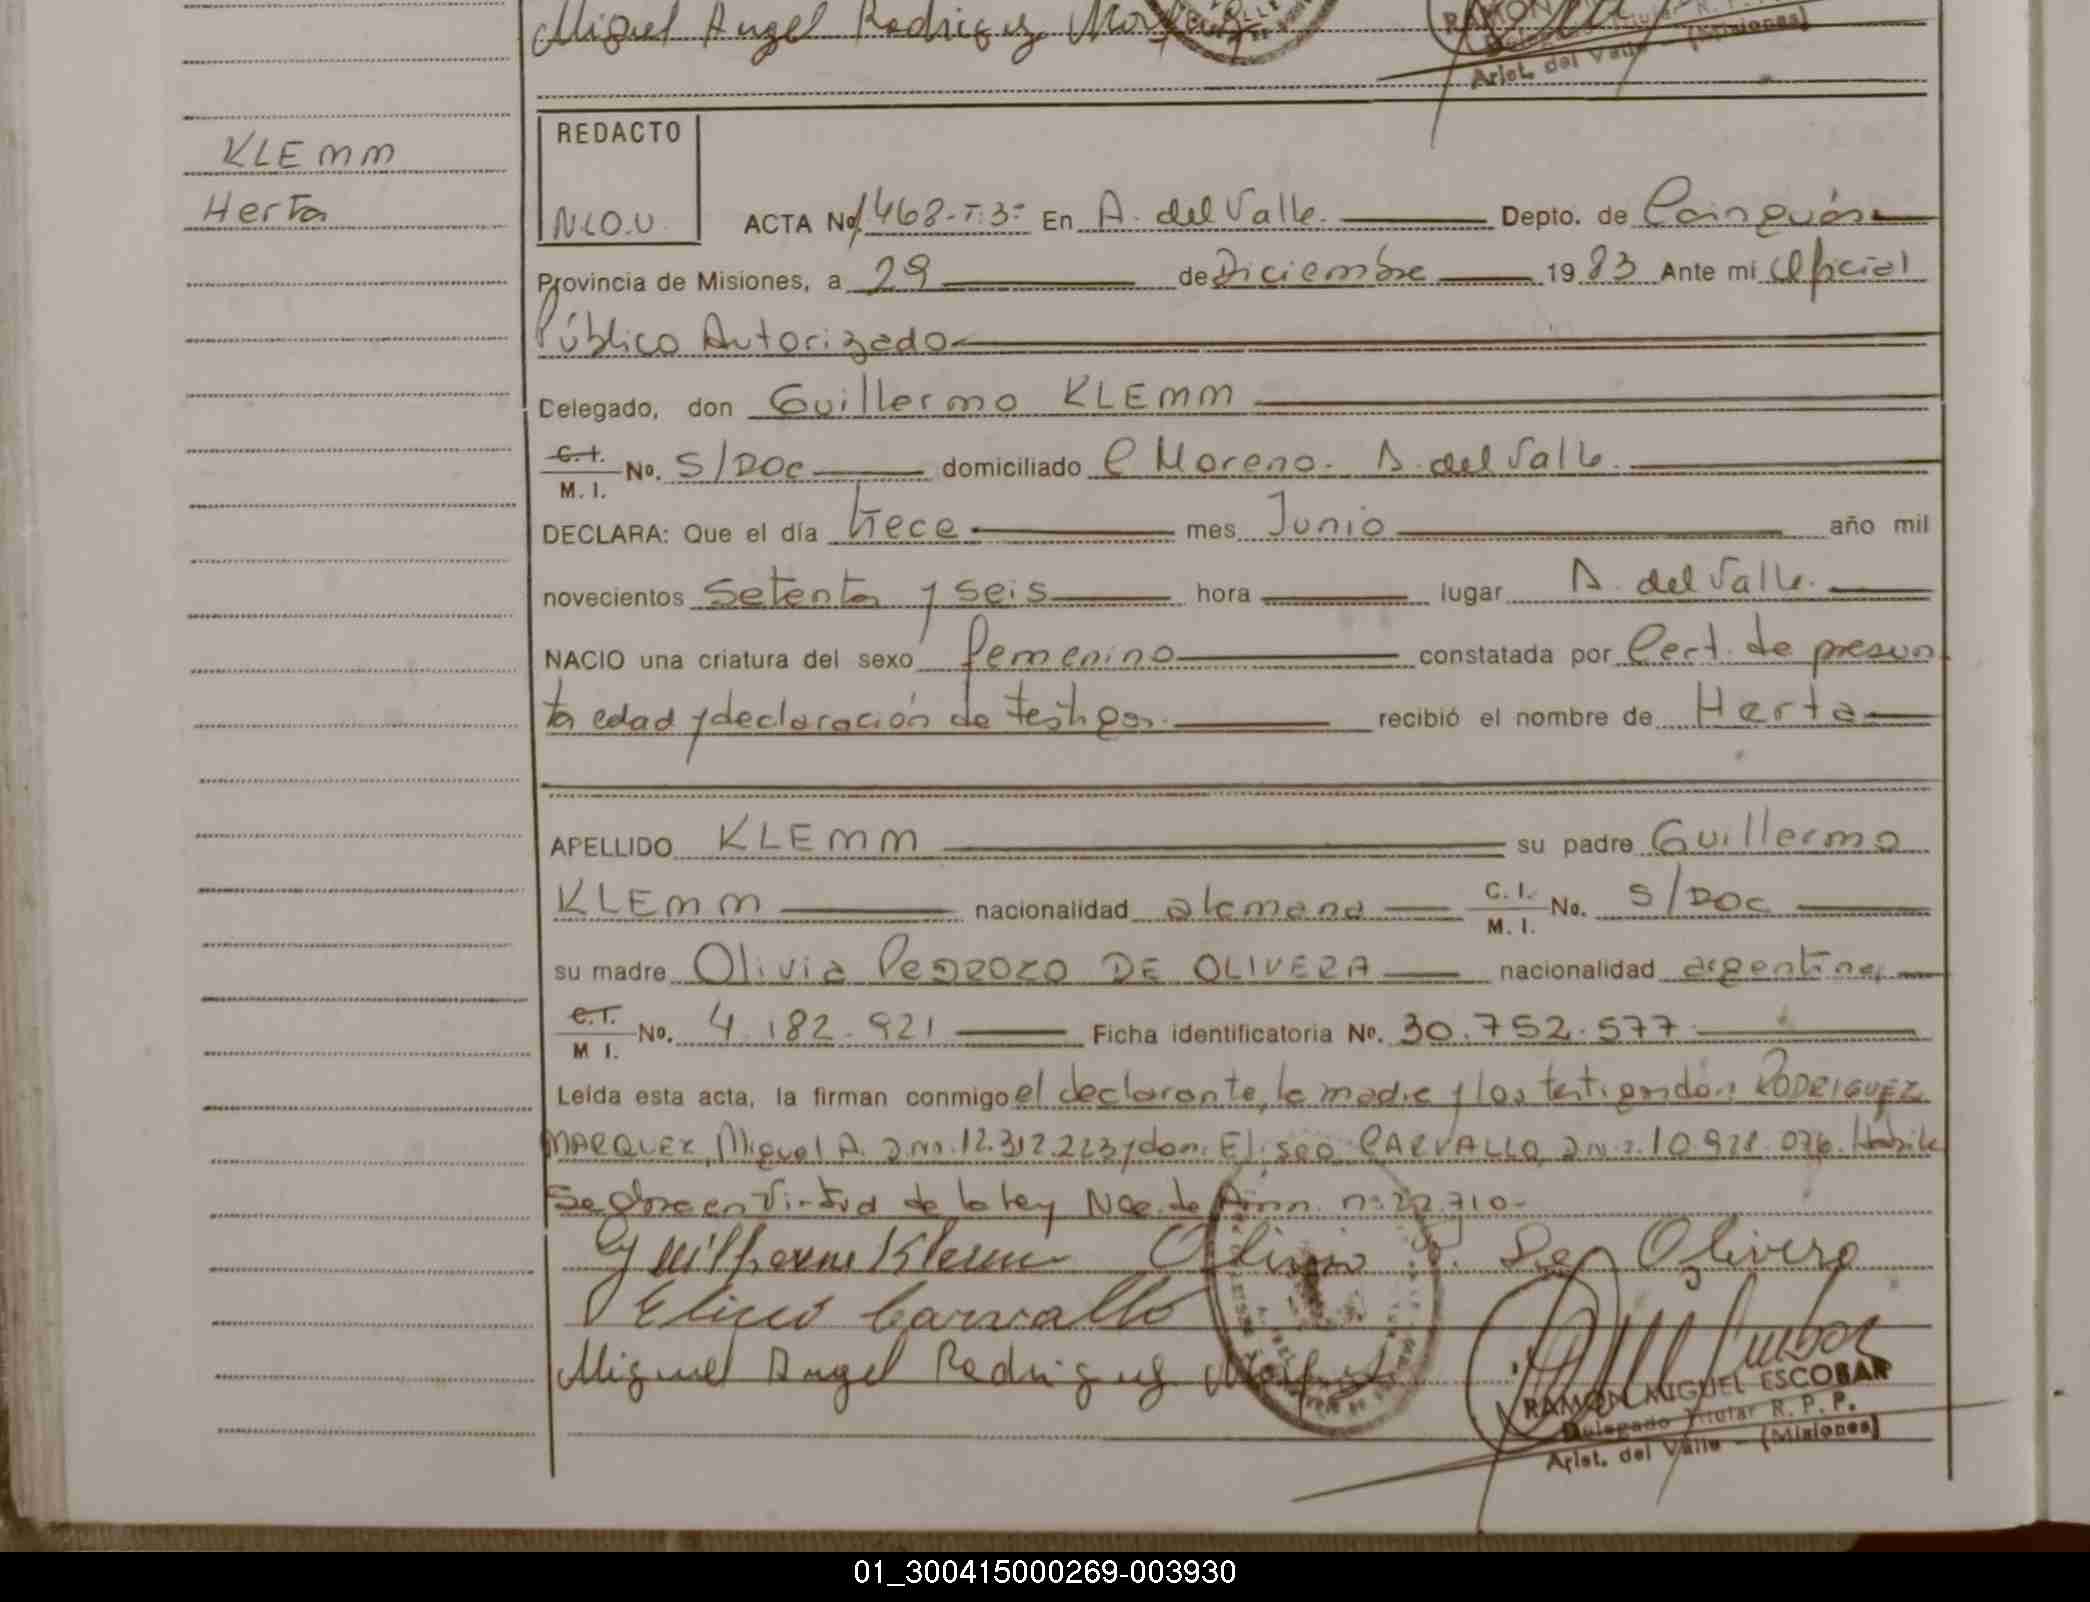 Miguel Angel Rodriguez
Arist. del Valle - (Misiones)
KLEMM
Herta
REDACTO
N.L.O.U.
ACTA No 1468-T.3º En A. del Valle. Depto. de Cainguás
Provincia de Misiones, a 29 de Diciembre 1983 Ante mi Oficial
Público Autorizado
Delegado, don Guillermo KLEMM
C.I. M.I. No. S/DOC domiciliado C Moreno. A. del Valle.
DECLARA: Que el día trece mes Junio año mil
novecientos setenta y seis hora lugar A. del Valle.
NACIO una criatura del sexo femenino constatada por Cert. de presun
ta edad y declaración de testigos. recibió el nombre de Herta
APELLIDO KLEMM su padre Guillermo
KLEMM nacionalidad alemana C.I. M.I. No. S/DOC
su madre Olivia PEDROZO DE OLIVERA nacionalidad argentina,
C.I. M I. No. 4.182.921 Ficha identificatoria No. 30.752.577
Leída esta acta, la firman conmigo el declarante, la madre y los testigos don: RODRIGUEZ
MARQUEZ, Miguel A. 12.312.223 y don: Eliseo CARVALLO 10.928.076.
Se labra en virtud de la ley Nac. de Amn. nº 22.710-
Guilherme Klemm Olivia P. De Olivera
Eliseo Carvallo
Miguel Angel Rodriguez
RAMON MIGUEL ESCOBAR
Delegado Titular R. P. P.
Arist. del Valle - (Misiones)
01_300415000269-003930